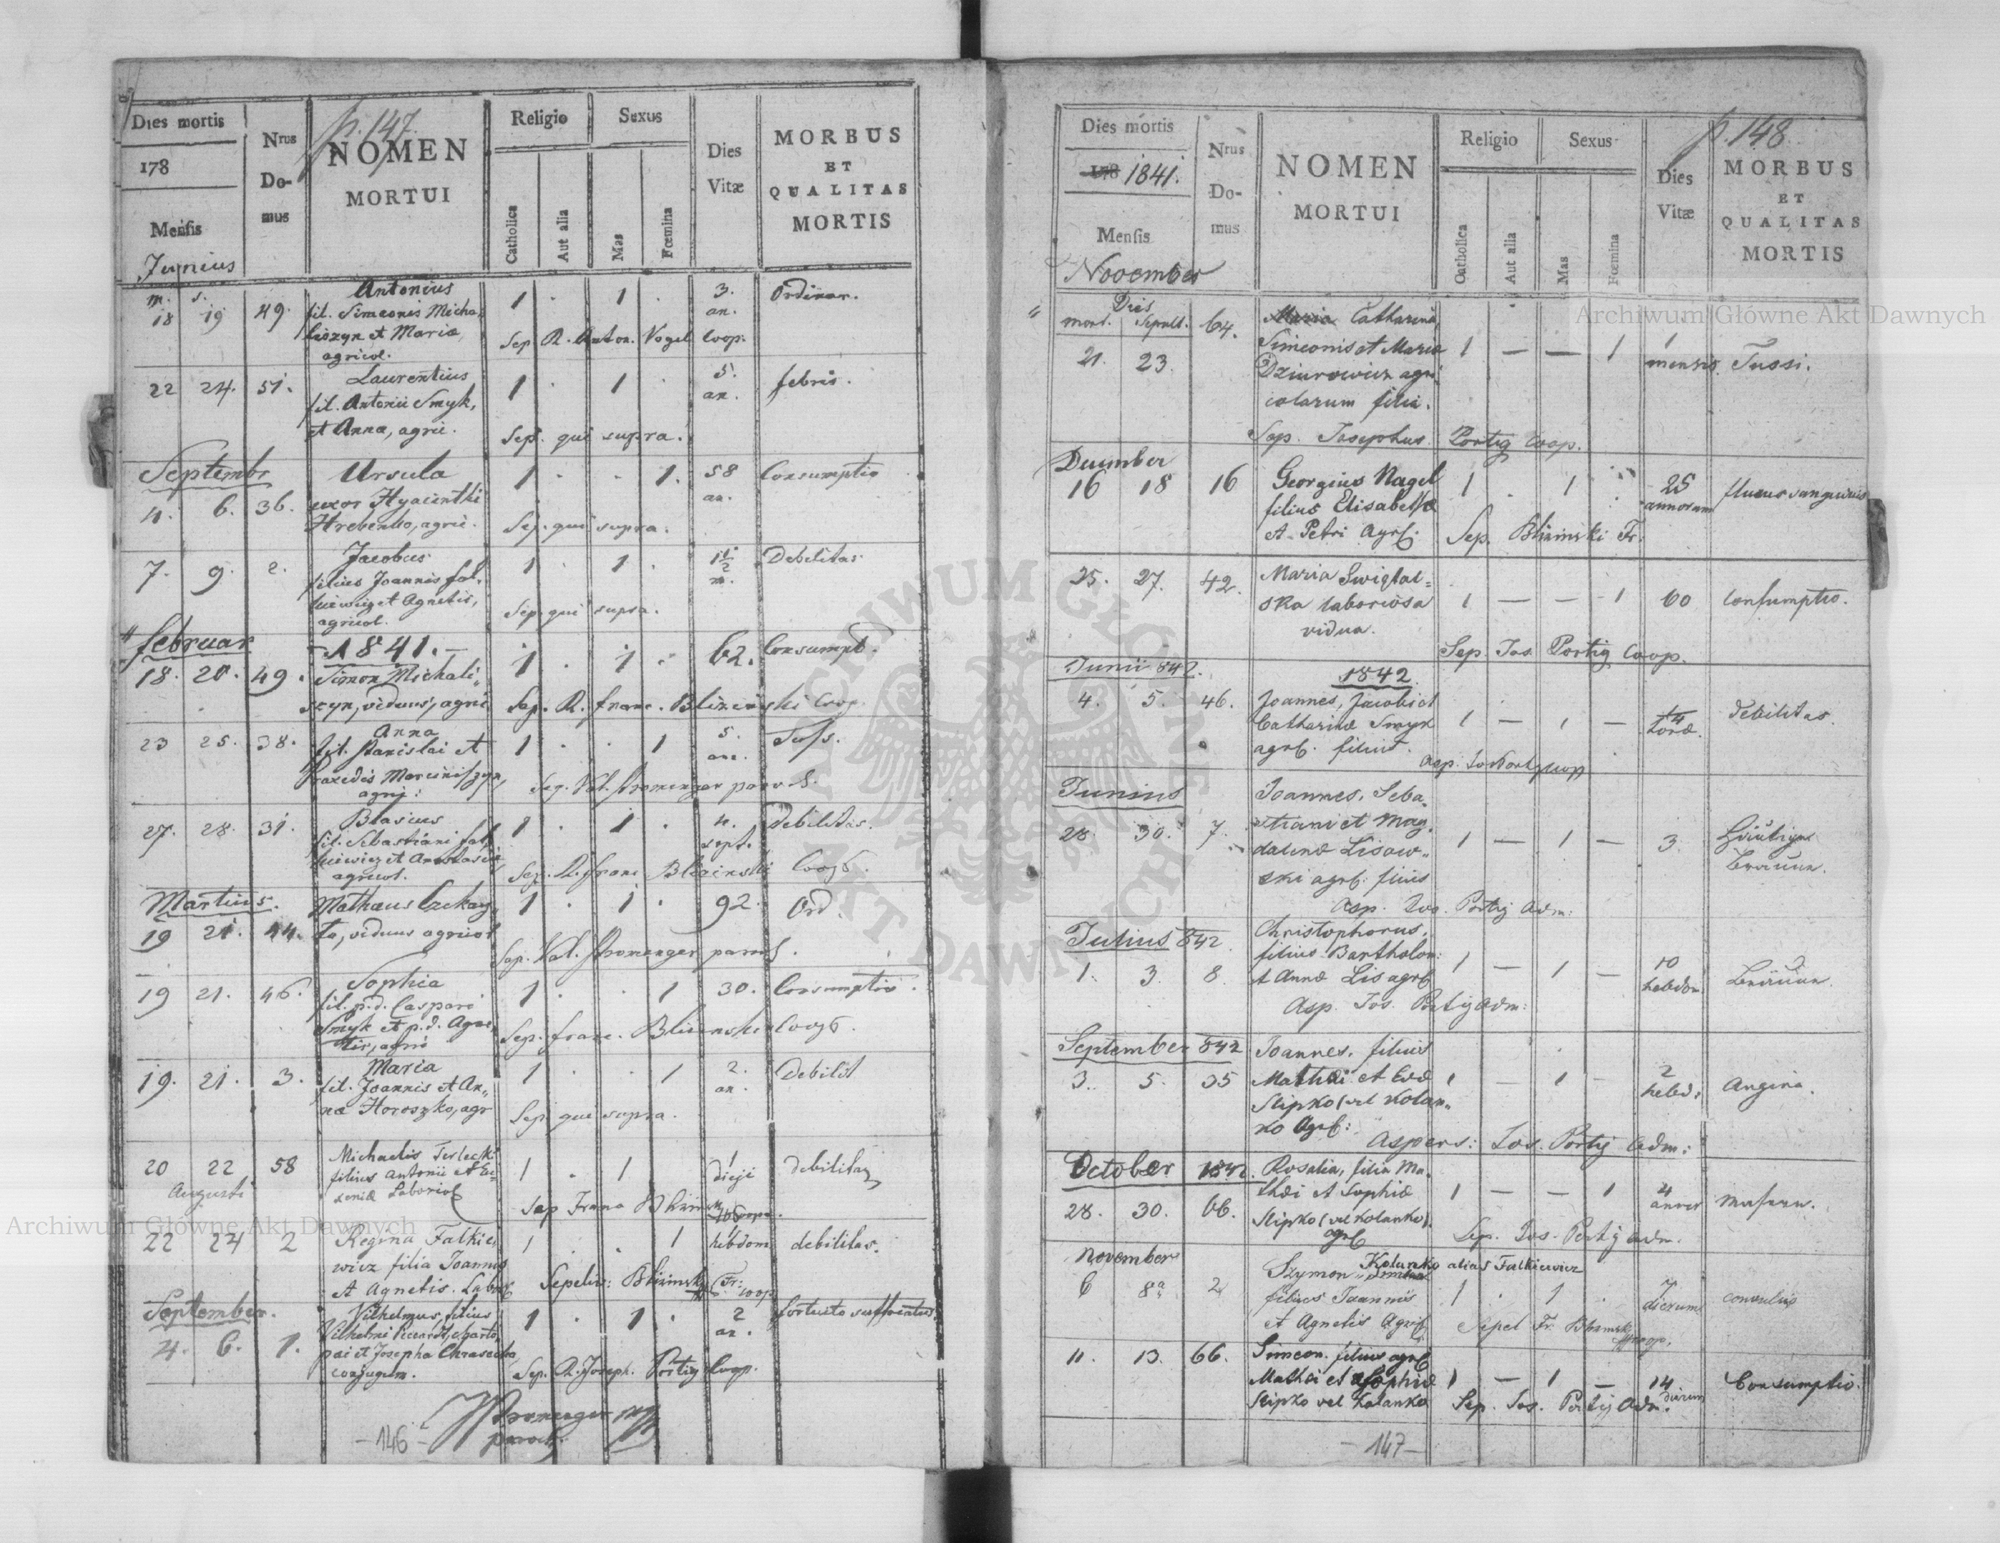 p. 147.
Dies mortis
178
Mensis
Junius
Nrus
Do-
mus
NOMEN
MORTUI
Religio
Catholica
Aut alia
Sexus
Mas
Fœmina
Dies
Vitæ
MORBUS
ET
QUALITAS
MORTIS
m. s.
18 19 49. Antonius 1 . 1 . 3. Ordinar.
fil. Simeonis Micha- an.
liszyn et Mariæ, Sep. R. Anton. Vogel Coop.
agricol.
22 24. 51. Laurentius 1 . 1 . 5. febris.
fil. Antonii Smyk, an.
et Annæ, agric. Sep. qui supra.
Septembr Ursula 1 . . 1. 58 Consumptio
4. 6. 36. uxor Hyacinthi an.
Hrebenko, agric. Sep. qui supra.
7. 9. 2. Jacobus 1 . 1 . 1½ Debilitas
filius Joannis fal- m.
kiewicz et Agnetis, Sep. qui supra.
agricol.
februar. 1841.
18. 20. 49. Simon Michali- 1 . 1 . 62. Consumpt.
szyn, viduus, agric. Sep. R. franc. Blizinski Coop.
23 25. 38. Anna 1 . . 1 5. Tuss.
fil. Stanislai et an.
Praxedis Marciniszyn, Sep. Val. Stromenger paroch.
agric:
27. 28. 31. Blasius 1 . 1 . 4. Debilitas.
fil. Sebastiani fal- sept.
kiewicz et Anastasiæ, Sep. R. franc Blizinski Coop.
agricol.
Martius. Mathæus Czekay- 1 . 1 . 92. Ord.
19 21. 44. to, viduus agricol
Sep. Val. Stromenger paroch.
19 21. 46. Sophia 1 . . 1 30. Consumptio.
fil. p.d. Caspari
Smyk et p.d. Agne- Sep. franc. Blizinski Coop.
tis, agric
19. 21. 3. Maria 1 . . 1 2. Debilit
fil. Joannis et An- an.
næ Horoszko, agr Sep. qui supra.
20 22 58 Michaelis Terlecki 1 . 1 1 debilitas
Augusti filius Antonii et Eu- diei
geniæ Laborios Sep Franc Blizinski Coop.
22 24 2 Regina Falkie- 1 . . 1 1 debilitas.
wicz filia Joannis hebdom
et Agnetis. Labor Sepeliv: Blizinski Fr: Coop
September. Vilhelmus, filius 1 . 1 . 2 fortuito suffocatus
4. 6. 1. Vilhelmi an.
et Josepha Sep. R. Joseph. Portig Coop.
conjugum.
Stromenger
paroch.
-146-
p. 148
Dies mortis
178 1841.
Mensis
November
Nrus
Do-
mus
NOMEN
MORTUI
Religio
Catholica
Aut alia
Sexus
Mas
Fœmina
Dies
Vitæ
MORBUS
ET
QUALITAS
MORTIS
Dies
mort. Sepult. 64. Maria Catharina
21. 23. Simeonis et Mariæ 1 — — 1 1 Tussi.
Dziurowicz agri- mensis
colarum filia.
Sep. Josephus Portig Coop.
December
16 18 16 Georgius Nagel 1 . 1 . 25 fluxus sanguinis
filius Elisabethæ annorum
et Petri Agrl. Sep. Blizinski Fr.
25. 27. 42. Maria Swiątal-
ska laboriosa 1 — — 1 60 Consumptio.
vidua.
Sep. Jos Portig Coop.
Junii 842. 1842.
4. 5. 46. Joannes, Jacobi et
Catharinæ Smyk 1 — 1 — ¼ debilitas.
agrl. filius. horæ.
Asp. Jos Portig Coop
Junius Joannes, Seba-
28. 30. 7. stiani et Mag-
dalenæ Lisow- 1 — 1 — 3. Häutige
ski agrl. filius Bräune.
Asp. Jos. Portig Adm:
Julius 842 Christophorus,
filius Bartholom:
1. 3. 8. et Annæ Lis agrl 1 — 1 — 10 Bräune.
hebdom.
Asp. Jos. Portig Adm:
September 842 Joannes, filius
3. 5. 35 Mathæi et Evæ 1 — 1 — 2 Angina.
Slipko (vel Kolan- hebd:
ko Agrl: Aspers: Jos. Portig Adm:
October 1842. Rosalia, filia Ma-
28. 30. 66. thæi et Sophiæ 1 — — 1 4 Masern.
Slipko (vel Kolanko). annor
agrl Sep. Jos. Portig Adm.
November Kolanko alias Falkiewicz
6 8a 2 Szymon
filius Joannis 1 . 1 . 7 convulsio
et Agnetis Agrl. dierum
Sepel Fr. Blizinski Coop.
11. 13. 66. Simeon. filius agrl
Mathæi et Sophiæ 1 — 1 — 14 Consumptio.
Slipko vel Kolanko Sep. Jos. Portig Adm. dierum
-147-
Archiwum Główne Akt Dawnych
Archiwum Główne Akt Dawnych
ARCHIWUM GŁÓWNE
AKT DAWNYCH